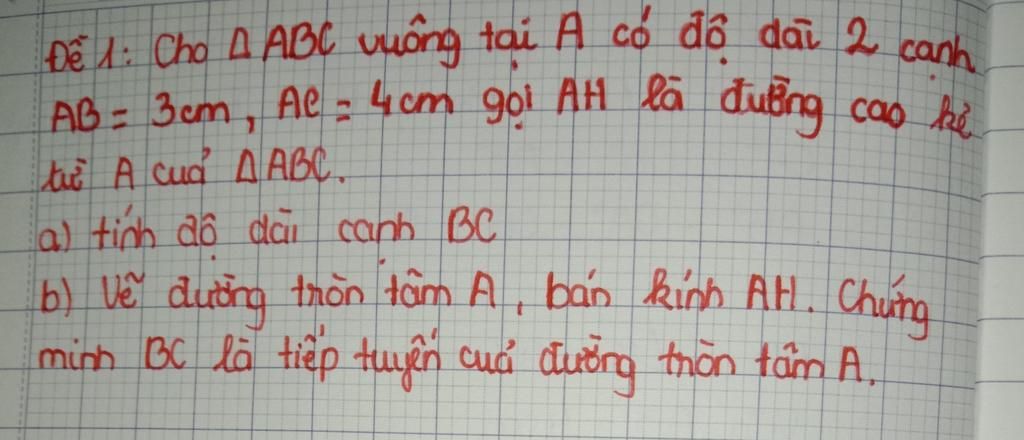 Đề 1: Cho Δ ABC vuông tại A có độ dài 2 cạnh
AB = 3cm, AC = 4cm gọi AH là đường cao kẻ
từ A của Δ ABC.
a) tính độ dài cạnh BC
b) Vẽ đường tròn tâm A, bán kính AH. Chứng
minh BC là tiếp tuyến của đường tròn tâm A.